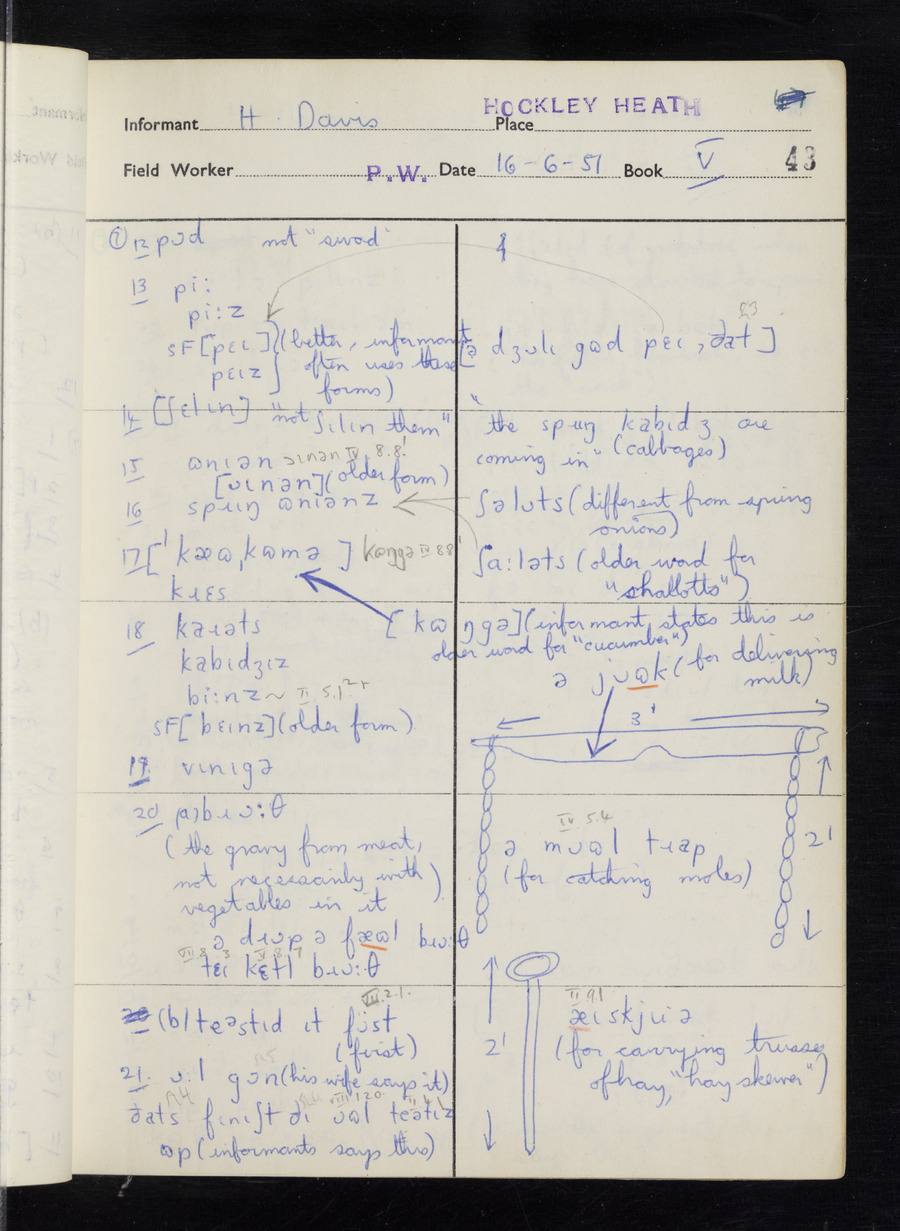 HOCKLEY HEATH
Informant H. Davis Place
Field Worker P.W. Date 16-6-51 Book V 43
⑦ 12 pɒd not "swad"
13 pi:
pi:z
SF[pɛɩ] (better, informant
pɛɩz often uses these
forms)
14 [ʃɛlɩn] "not ʃɩlɩn them"
15 ɷnɩən ɔɩnən IV 8.8.
[ʋɩnən] (older form)
16 spɹɩŋ ɷnɩənz
17 [ˈkæɷˌkɷmə] kɷŋgə IV 88
kɹɛs
18 kaɹəts
kabɩdʒɩz
bi:nz ~ II 5.1
SF[bɛɩnz] (older form)
19 vɩnɩgə
20 (a) bɹʋ:θ
(the gravy from meat,
not necessarily with
vegetables in it)
ə dɹɒp ə fæɷl bɹʋ:θ
VII 8.3 V 8.7
tɛɩ kɛtl bɹʋ:θ
VII.2.1.
(b) teəstɩd ɩt fʋst
(first)
21. ʋ:l gɒn (his wife says it)
ðats fɩnɩʃt ðɩ ʋɷl teətɩz
ɷp (informants says this)
[ə dʒʋlɩ gɷd pɛɩ, ðat]
"the spɹɩŋ kabɩdʒ are
coming in" (cabbages)
ʃalʋts (different from spring
onions)
ʃa:ləts (older word for
"shallotts")
[kɷŋgə] (informant states this is
older word for "cucumber")
ə jʋɷk (for delivering
milk)
3'
2'
IV 5.4
ə mʋɷl tɹap
(for catching moles)
2'
II 91
æɩ skjuɩə
(for carrying trusses
of hay, "hay skewer")